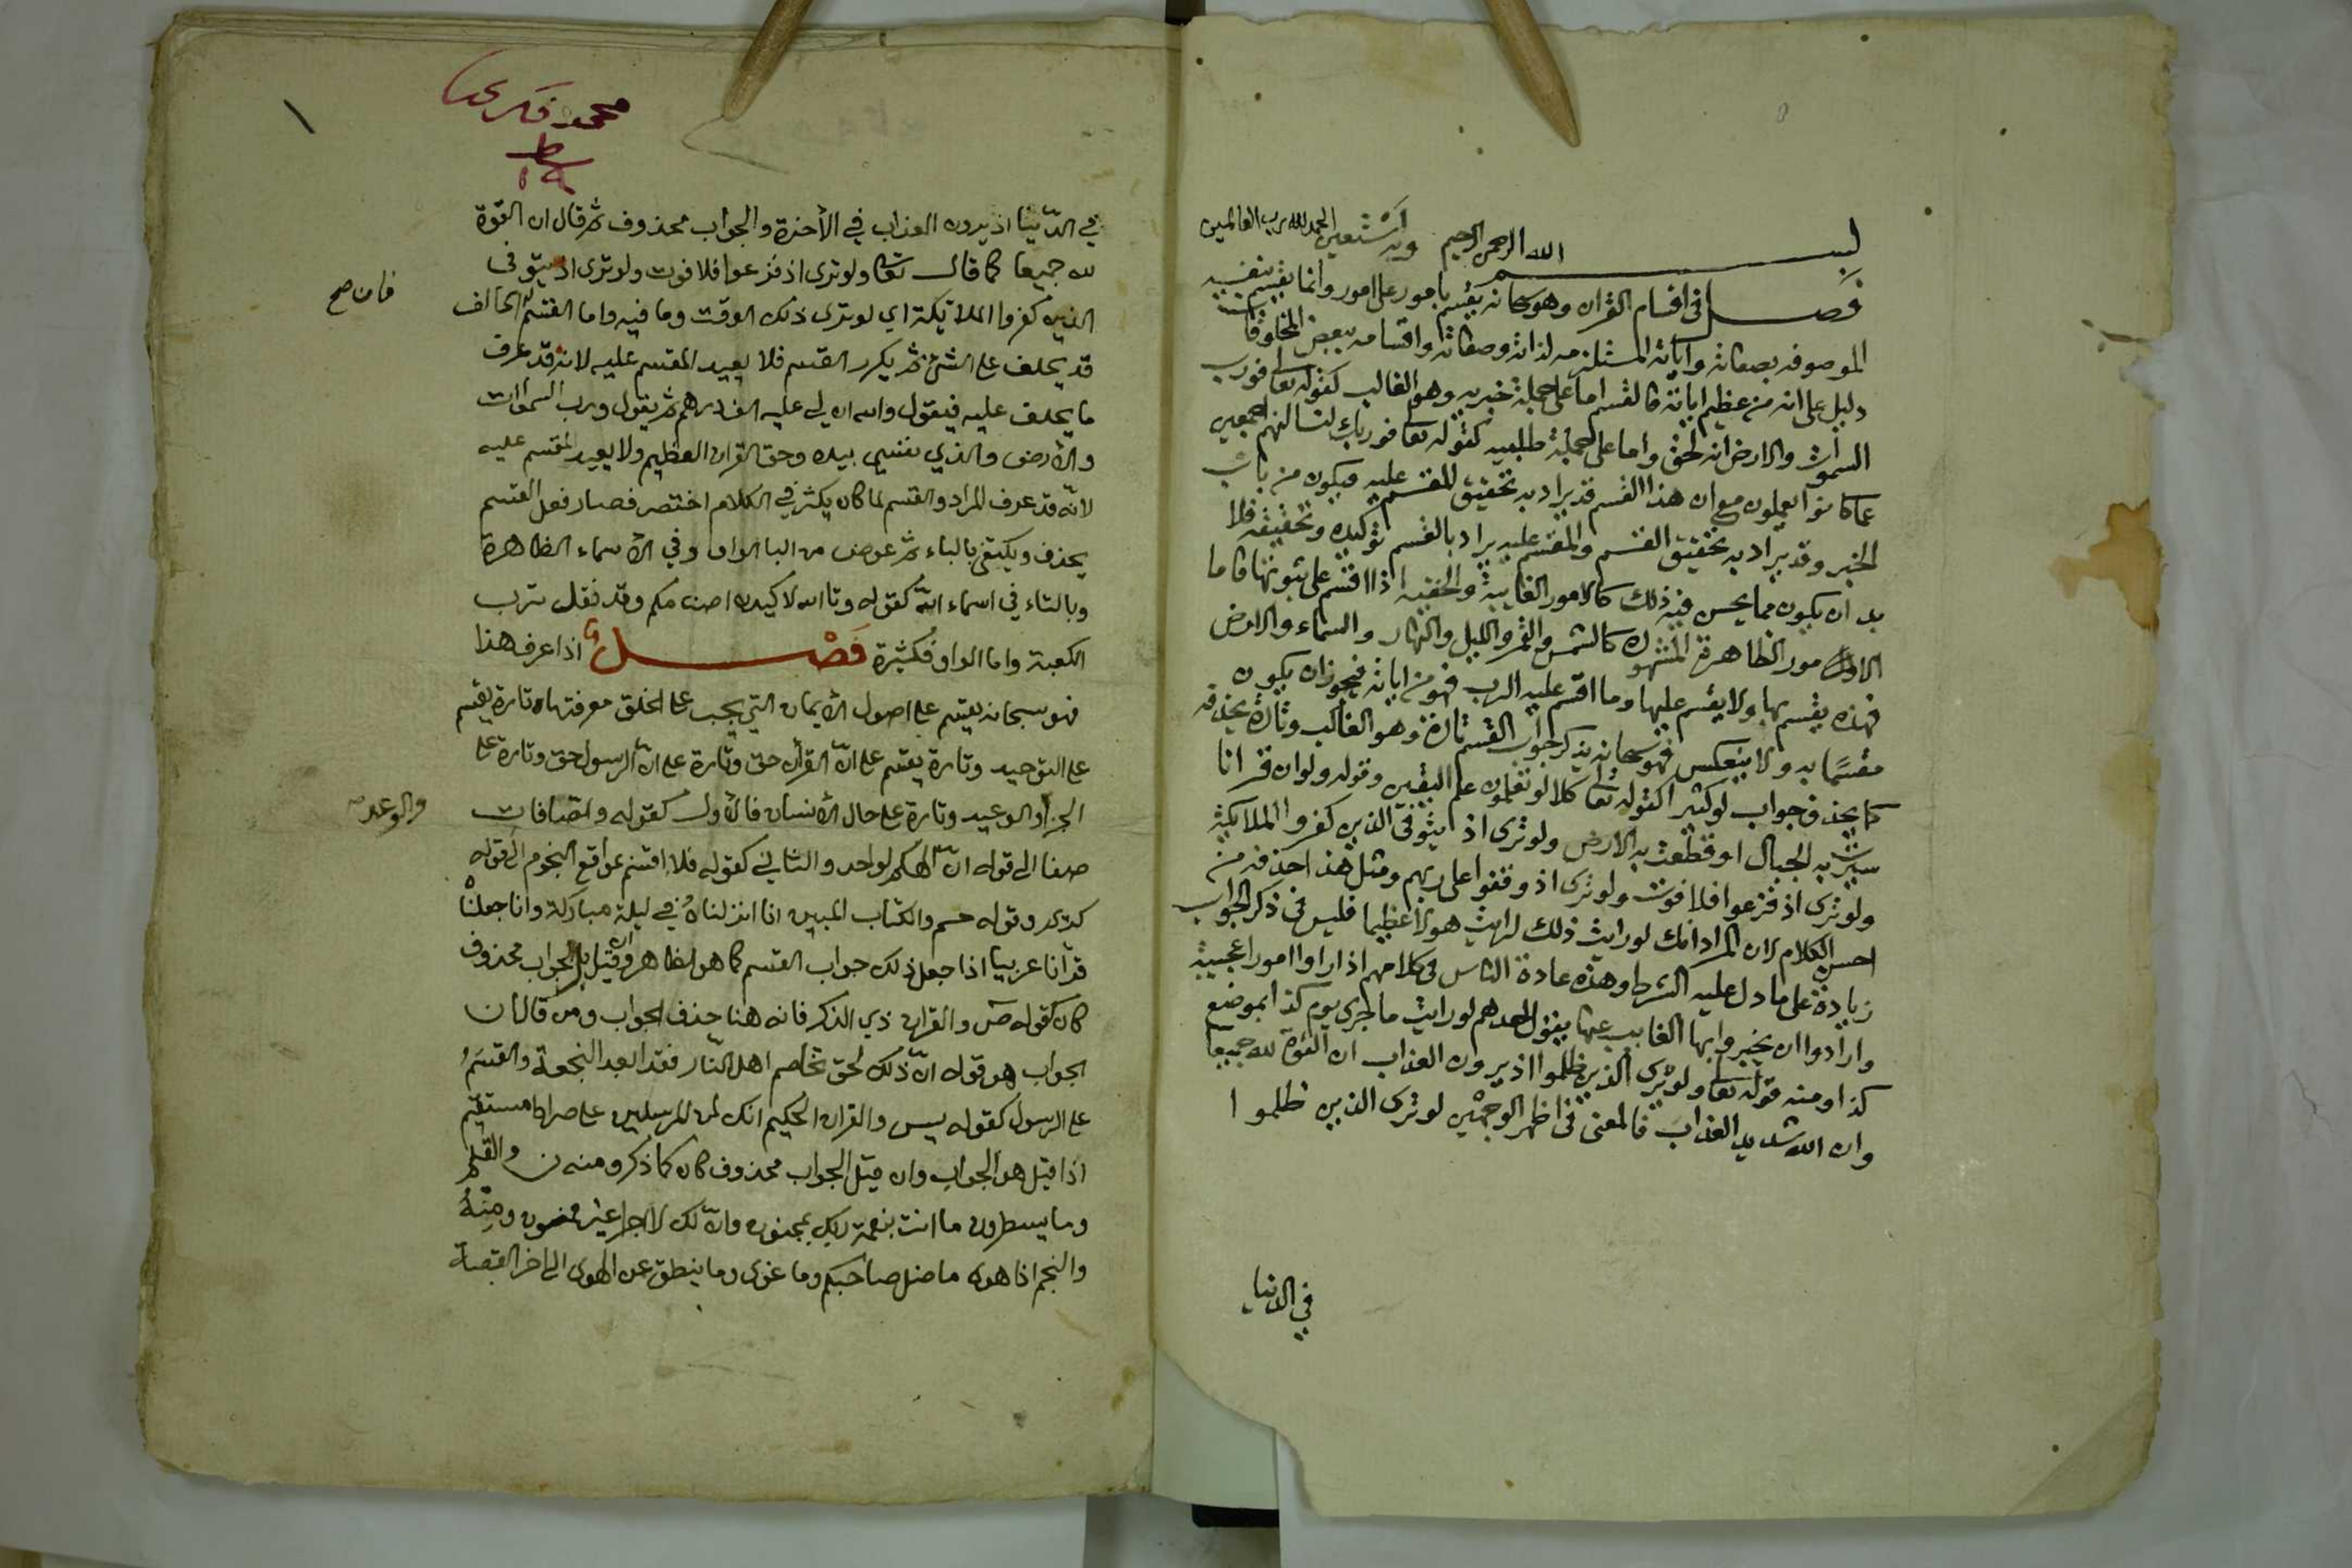 بسم الله الرحمن الرحيم وبه نستعين الحمد لله رب العالمين
فصل فى اقسام القران وهو سبحانه يقسم بامور على امور وانما يقسم بنفسه
الموصوفه بصفاته واياته المستلزمه لذاته وصفاته واقسامه ببعض المخلوقات
دليل على انه من عظيم اياته فالقسم اما على جملة خبريه وهو الغالب كقوله تعا فورب
السموات والارض انه لحق واما على جملة طلبيه كقوله تعا فوربك لنسالنهم اجمعين
عما كانوا يعملون مع ان هذا القسم قد يراد به تحقيق المقسم عليه فيكون من باب
الخبر وقد يراد به تحقيق القسم والمقسم عليه يراد بالقسم توكيده وتحقيقه فلا
بد ان يكون مما يحسن فيه ذلك كالامور الغايبة والخفيه اذا اقسم على ثبوتها فاما
الامور الظاهرة المشهورة كالشمس والقمر والليل والنهار والسماء والارض
فهذه يقسم بها ولا يقسم عليها وما اقسم عليه الرب فهو من اياته فيجوز ان يكون
مقسما به ولا ينعكس فهو سبحانه يذكر جواب القسم تارة وهو الغالب وتارة يحذفه
كما يحذف جواب لو كثيرا كقوله تعا كلا لو تعلمون علم اليقين وقوله ولو ان قرانا
سيرت به الجبال او قطعت به الارض ولو ترى اذ يتوفى الذين كفروا الملايكة
ولو ترى اذ فزعوا فلا فوت ولو ترى اذ وقفوا على ربهم ومثل هذا حذفه من
احسن الكلام لان المراد انك لو رايت ذلك لرايت هولا عظيما فليس فى ذكر الجواب
زيادة على ما دل عليه الشرط وهذه عادة الناس فى كلامهم اذا راوا امورا عجيبة
وارادوا ان يخبروا بها الغايب عنها يقول احدهم لو رايت ما جرى يوم كذا بموضع
كذا ومنه قوله تعا ولو ترى الذين ظلموا اذ يرون العذاب ان القوة لله جميعا
وان الله شديد العذاب فالمعنى فى اظهر الوجهين لو ترى الذين ظلموا
فى الدنيا
في الدّنيا اذ يرون العذاب في الأخرة والجواب محذوف ثم قال ان القوّة
لله جميعا كما قال تعا ولو ترى اذ فزعوا فلا فوت ولو ترى اذ يتوفى
الذين كفروا الملائكة اي لو ترى ذلك الوقت وما فيه واما القسم فان الحالف
فان صح
قد يحلف على الشئ ثم يكرر القسم فلا يعيد المقسم عليه لانه قد عرف
ما يحلف عليه فيقول والله ان لي عليه الف درهم ثم يقول ورب السموات
والأرض والذي نفسي بيده وحق القران العظيم ولا يعيد المقسم عليه
لانّه قد عرف المراد والقسم لما كان يكثر في الكلام اختصر فصار فعل القسم
يحذف ويكتفى بالباء ثم عوض من البا الواو في الأسماء الظاهرة
وبالتاء في اسماء اللّه كقوله وتالله لاكيدن اصنامكم وقد نقل ترب
الكعبة واما الواو فكثيرة فَصْل اذا عرف هذا
فهو سبحانه يقسم على اصول الأيمان التي يجب على الخلق معرفتها تارة يقسم
على التوحيد وتارة يقسم على انّ القرأن حق وتارة على انّ الرسول حق وتارة على
الجزا والوعيد وتارة على حال الأنسان فالأول كقوله والصافات
والوعد
صفا الى قوله انّ الهكم لواحد والثاني كقوله فلا اقسم بمواقع النجوم الى قوله
كريم وقوله حم والكتاب المبين انا انزلناه في ليلة مباركة وانا جعلناه
قرآنا عربيا اذا جعل ذلك جواب القسم كما هو الظاهر وان قيل بل الجواب محذوف
كان كقوله ص والقران ذي الذكر فانه هنا حذف الجواب ومن قال ان
الجواب هو قوله انّ ذلك لحق تخاصم اهل النار فقد ابعد النجعة والقسم
على الرسول كقوله يس والقران الحكيم انك لمن المرسلين على صراط مستقيم
اذا قيل هو الجواب وان قيل الجواب محذوف كان كما ذكر ومنه ن والقلم
وما يسطرون ما انت بنعمة ربك بمجنون وانّ لك لأجرا غير ممنون ومنه
والنجم اذا هوى ما ضل صاحبكم وما غوى وما ينطق عن الهوى الى اخر القصة